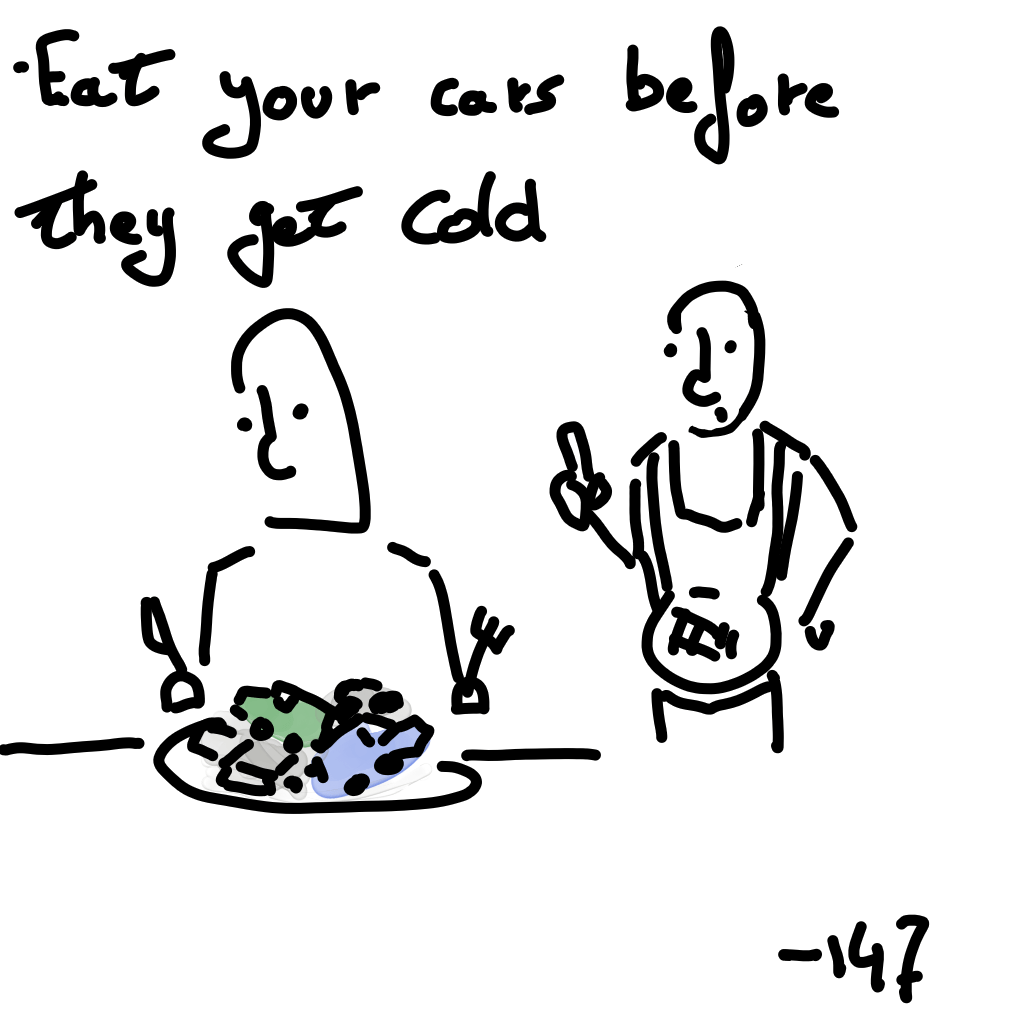 ·Eat your cars before
they get cold
-147